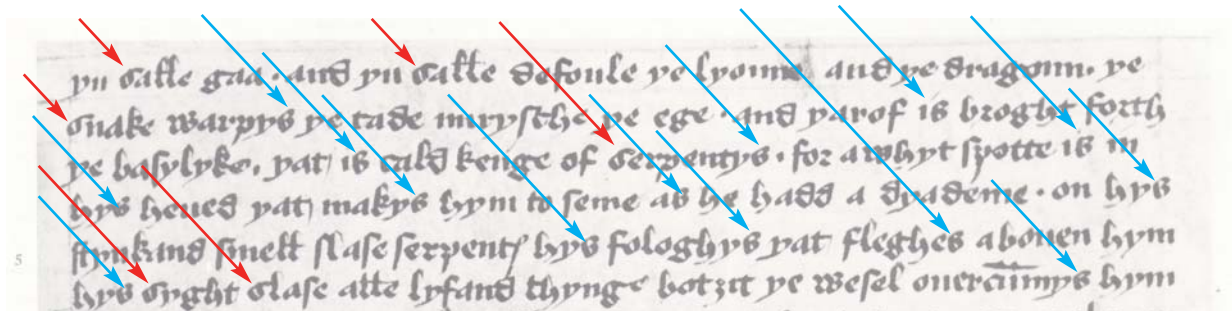 yu salle gaa · and yu salle defoule ye lyoune and ye dragoun. ye
snake warpys ye tade nurysche ye ege · and yarof is broght forth
ye basylyke. yat is cald kenge of serpentys. for a whyt spotte is in
hys heued yat makys hym to seme as he hadd a dyademe · on hys
5 stynkand smell slase serpentȝ hys fologhys yat fleghes abouen hym
hys syght slase alle lyfand thynge botȝit ye wesel ouercummys hym